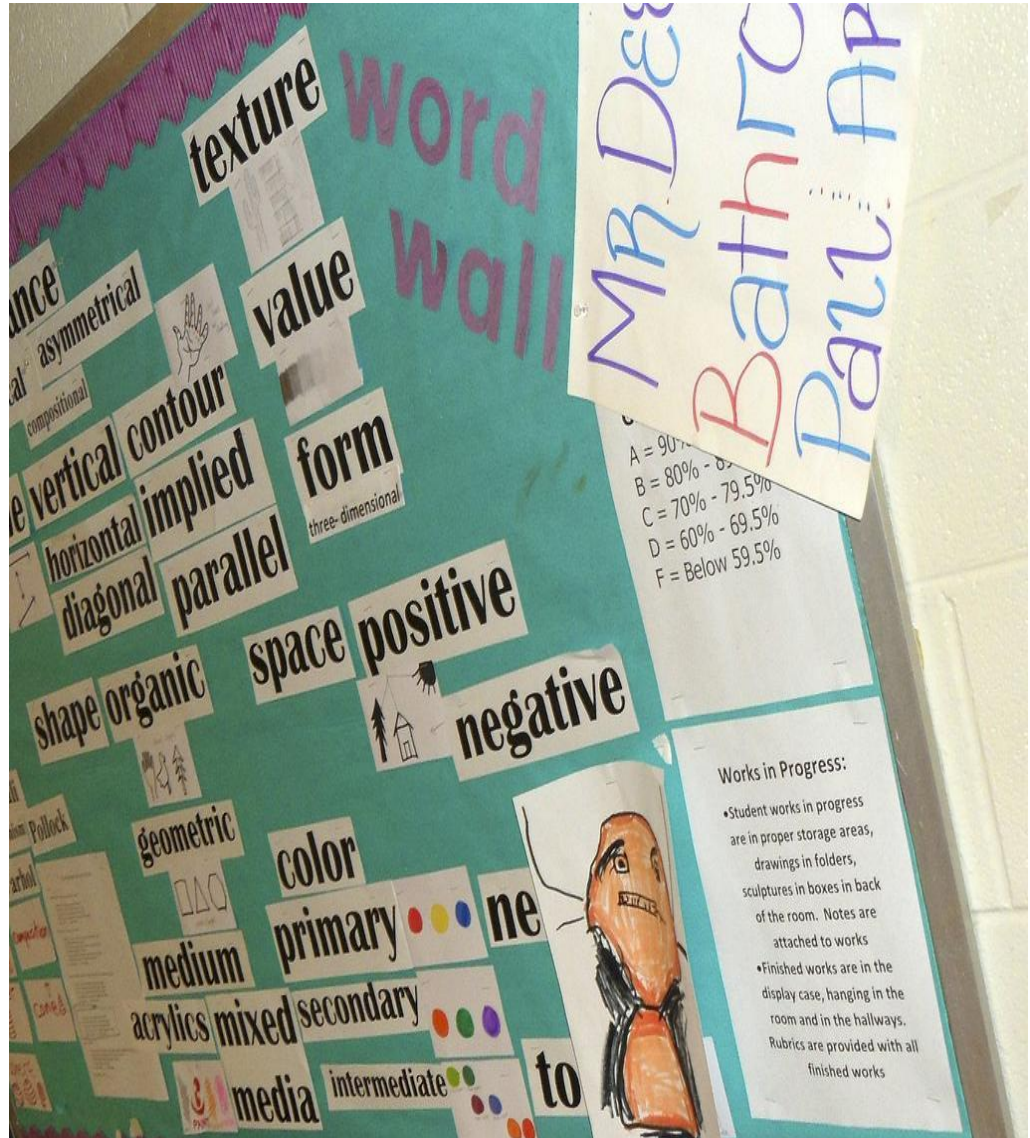 word
wall
texture
value
form
three-dimensional
asymmetrical
compositional
vertical
contour
horizontal
implied
diagonal
parallel
space
positive
negative
shape
organic
geometric
Pollock
color
primary
secondary
intermediate
medium
acrylics
mixed
media
PAINT
ne
to
MR. DE
Bath
Pall
A = 90%
B = 80% - 
C = 70% - 79.5%
D = 60% - 69.5%
F = Below 59.5%
Works in Progress:
•Student works in progress
are in proper storage areas,
drawings in folders,
sculptures in boxes in back
of the room. Notes are
attached to works
•Finished works are in the
display case, hanging in the
room and in the hallways.
Rubrics are provided with all
finished works